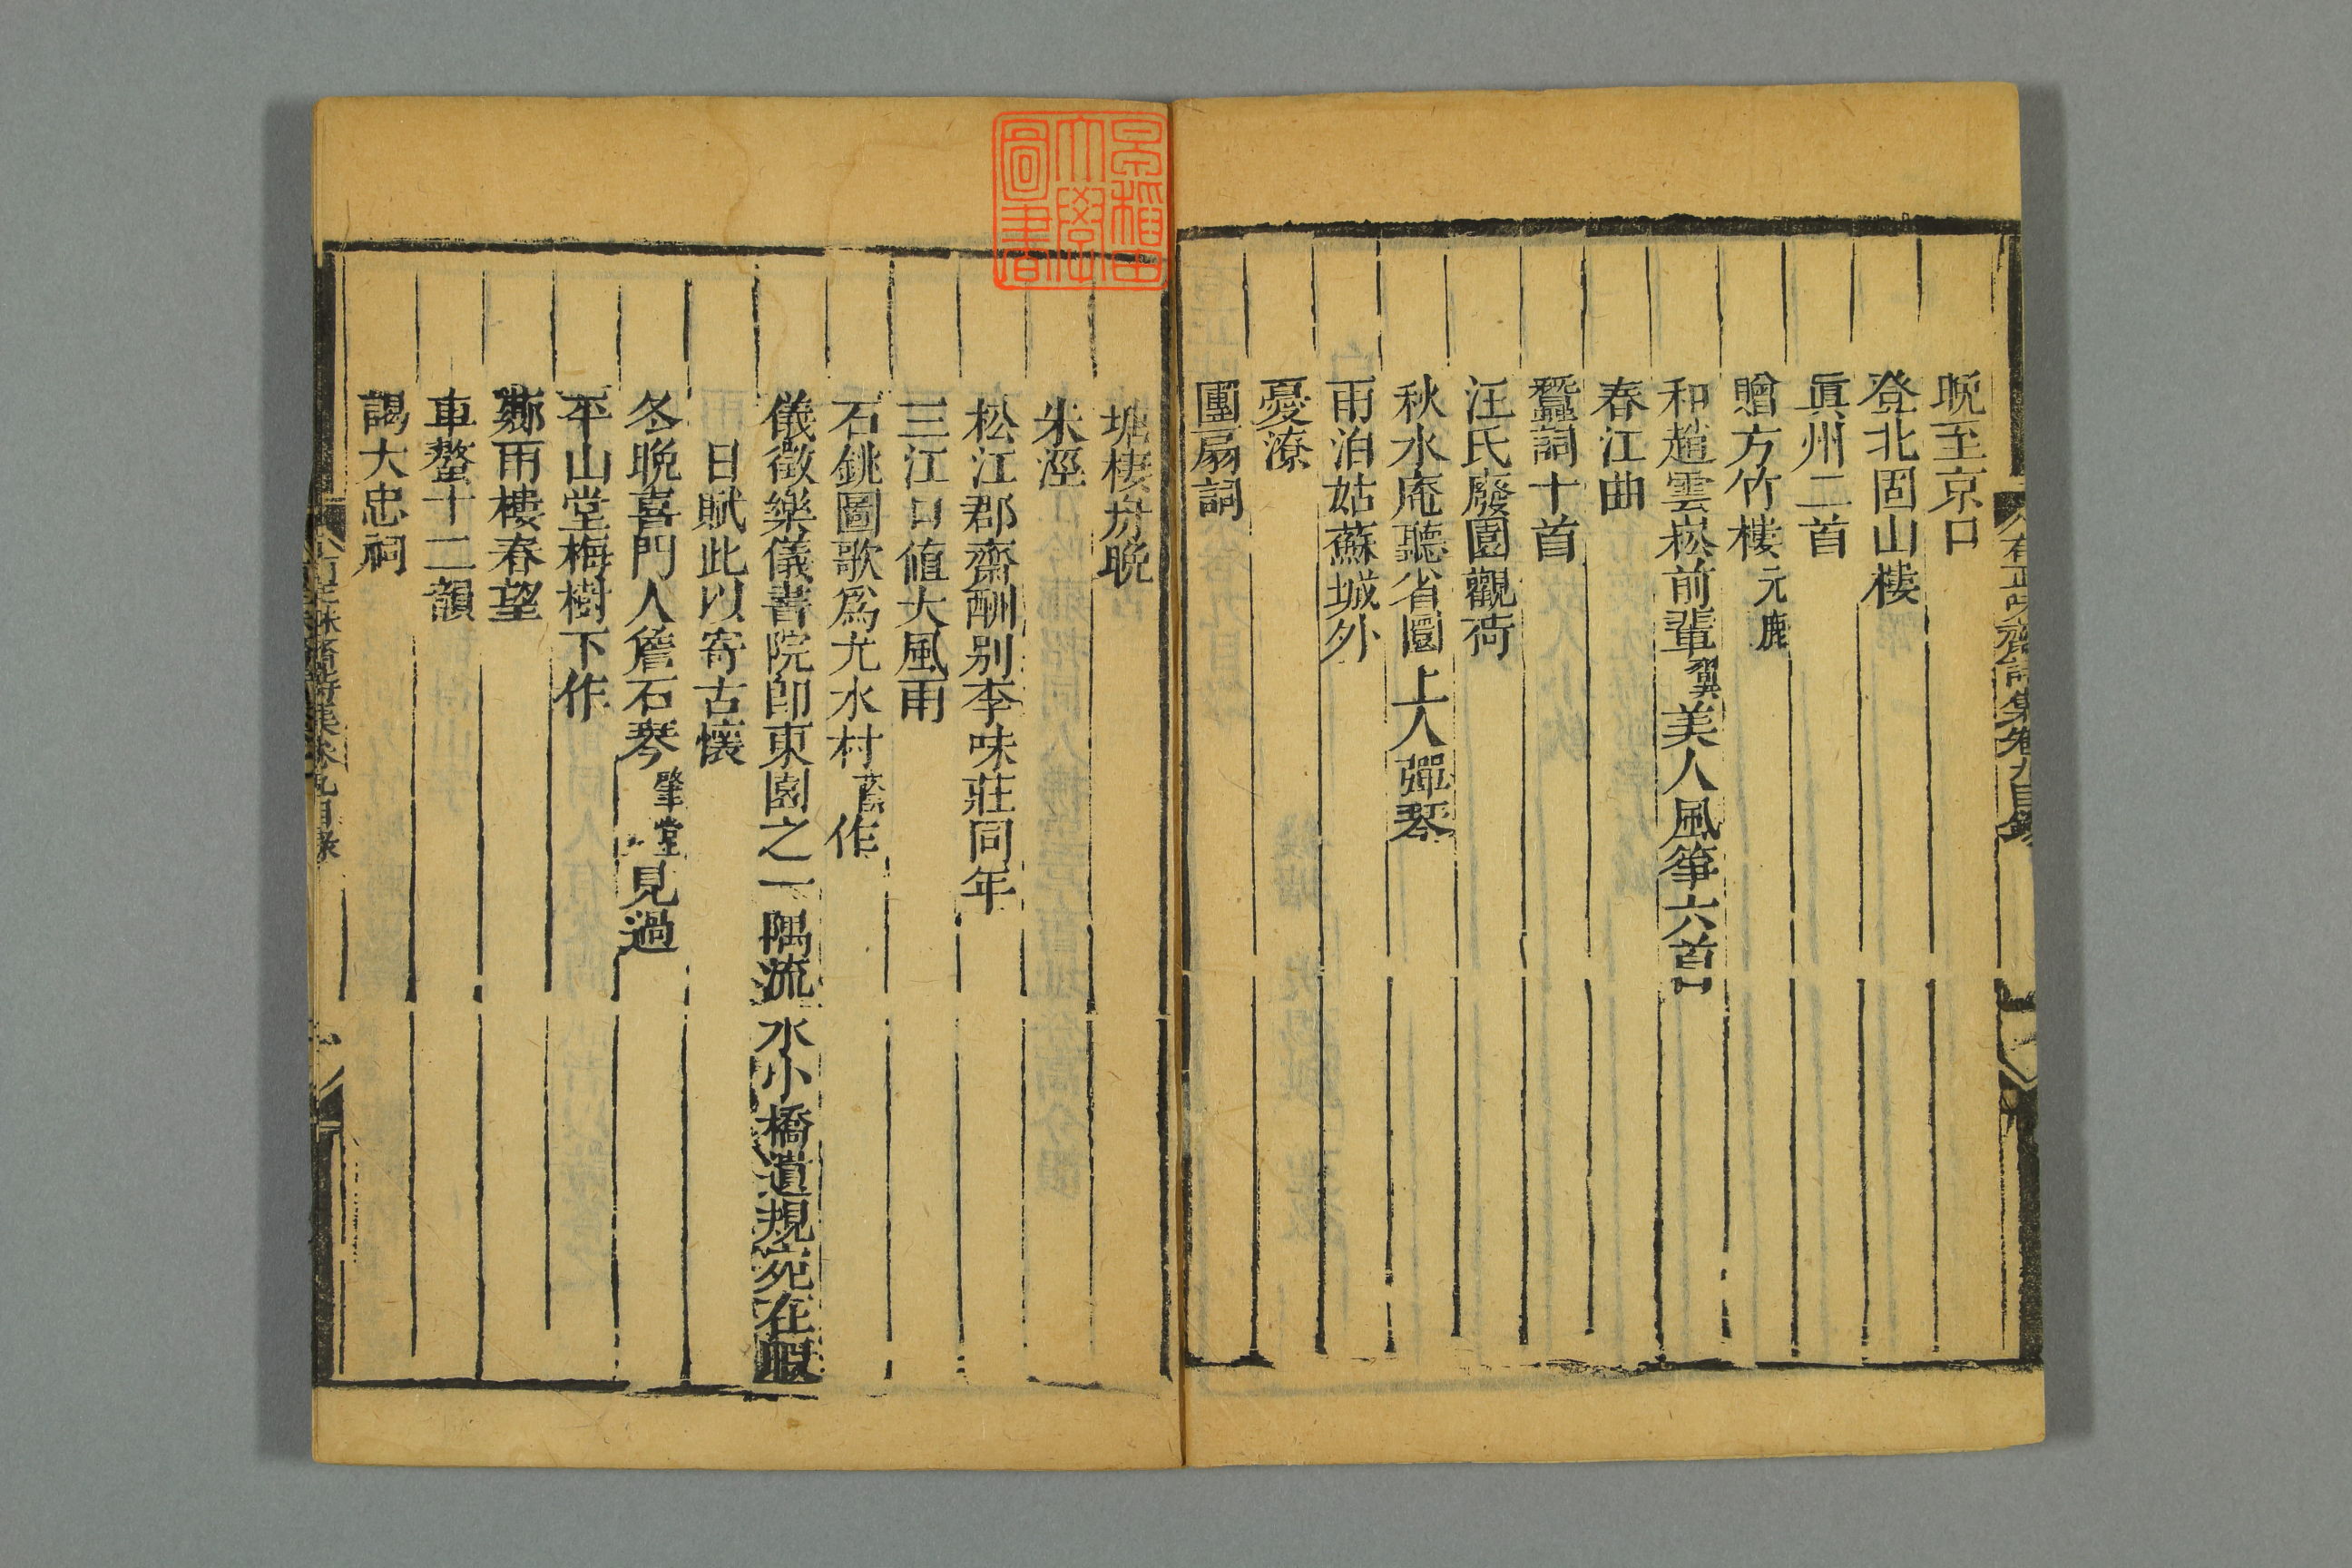 晚至京口
登北固山樓
眞州二首
贈方竹樓元鹿
和趙雲崧前輩翼美人風箏六首
春江曲
蠶詞十首
汪氏廢園觀荷
秋水庵聽省園上人彈琴
雨泊姑蘇城外
憂潦
團扇詞
有正味齋詩集卷九目錄
早稲田大學圖書
塘棲舟晚
朱涇
松江郡齋酬别李味莊同年
三江口值大風雨
石銚圖歌爲尤水村蔭作
儀徵樂儀書院卽東園之一隅流水小橋遺規宛在暇
日賦此以寄古懷
冬晚喜門人詹石琴肇堂見過
平山堂梅樹下作
鄉雨樓春望
車螯十二韻
謁大忠祠
有正味齋詩集卷九目錄